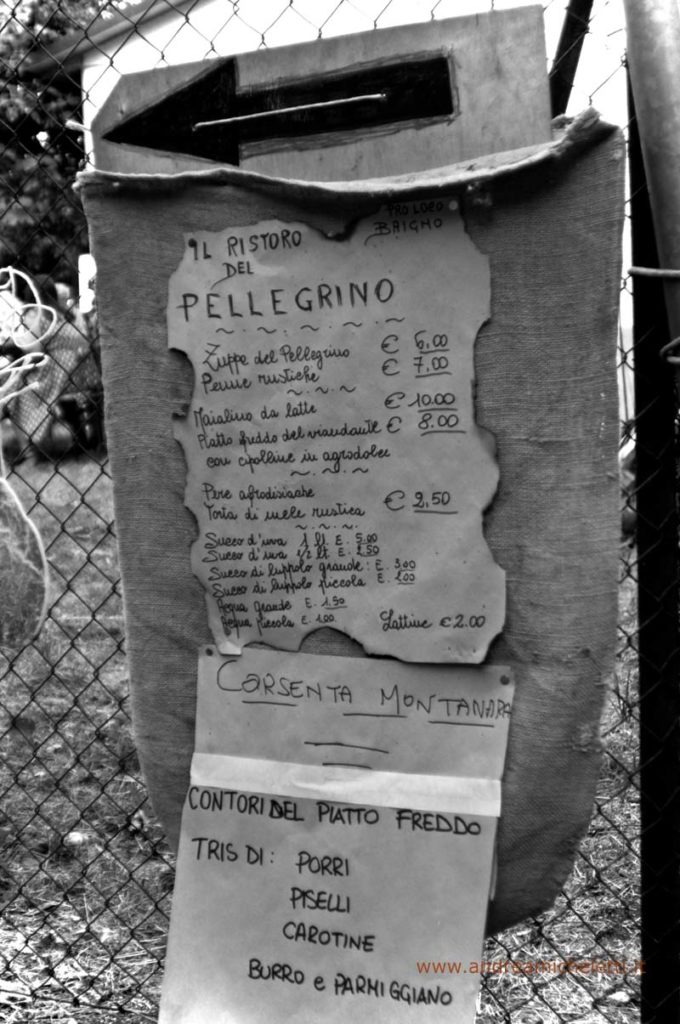 PRO LOCO
BAIGNO
IL RISTORO
DEL
PELLEGRINO
Zuppa del Pellegrino € 6,00
Penne rustiche € 7,00
Maialino da latte € 10.00
Piatto freddo del viandante € 8.00
con cipolline in agrodolce
Pere afrodisiache € 2,50
Torta di mele rustica
Succo d'uva 1 lt E. 5.00
Succo d'uva 1/2 lt E. 2.50
Succo di luppolo grande: E. 3,00
Succo di luppolo piccola E. 2.00
Acqua grande E. 1.50
Acqua piccola E. 1.00
Lattine € 2.00
CORSENTA MONTANARA
CONTORI DEL PIATTO FREDDO
TRIS DI: PORRI
PISELLI
CAROTINE
BURRO e PARMIGGIANO
www.andreamichelotti.it